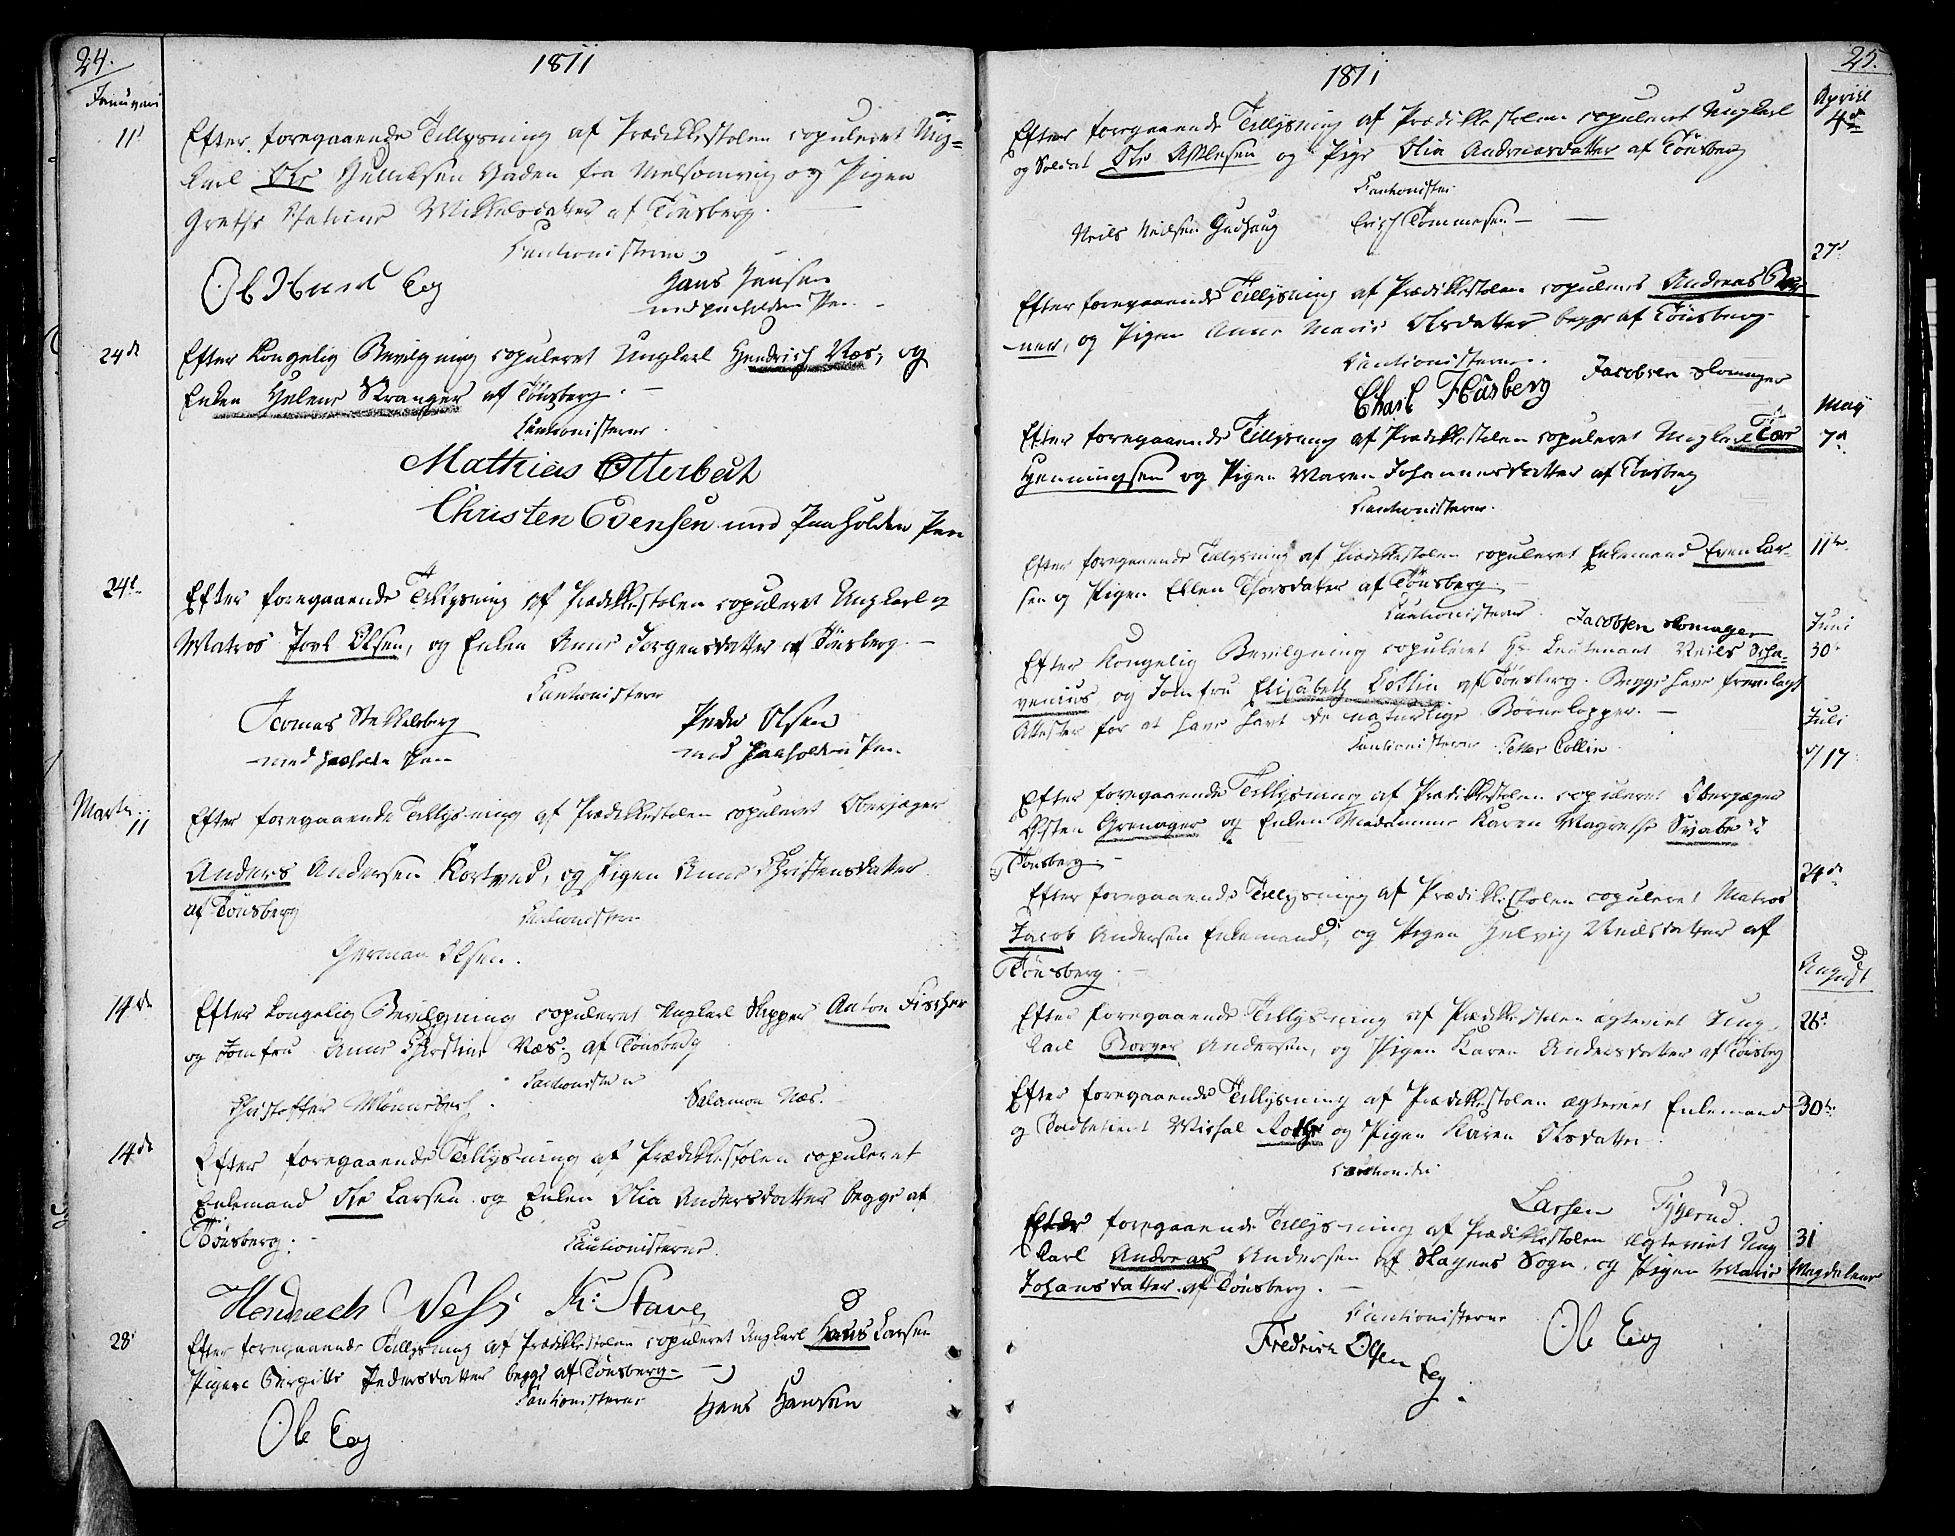 24.
1811
Januari
11
Efter foregaaende Tillysning af Prædikestolen copuleret Ung-
karl Ole Gulliksen fra Melsomvig og Pigen
Grethe Mikkelsdatter af Tönsberg.
Cautionisterne
Hans Hansen
med paaholden Pen
24de
Efter Kongelig Bevilgning copuleret Ungkarl Hendrich Næs, og
Enken Helene Stranger af Tönsberg.
Cautionisterne
Mathias Otterbech
Christen Evensen med Paaholden Pen
24de
Efter foregaaende Tillysning af Prædikestolen copuleret Ungkarl og
Matros Joel Olsen, og Enken Anne Jørgensdatter af Tönsberg.
Cautionisterne
med paaholden Pen
Peder Olsen
med Paaholden Pen
Marts
11
Efter foregaaende Tillysning af Prædikestolen copuleret Oberjæger
Anders Andersen Kortved, og Pigen Anne Christensdatter
af Tönsberg
Cautionisterne
German Olsen.
14de
Efter Kongelig Bevilgning copuleret Ungkarl Skipper Anton Fischer
og Jomfru Anne Christine Næs, af Tönsberg
Cautionisterne
Christoffer
Salamon Næs.
14de
Efter foregaaende Tillysning af Prædikestolen copuleret
Enkemand Ole Larsen og Enken Olia Andersdatter begge af
Tönsberg.
Cautionisterne
28
Efter foregaaende Tillysning af Prædikestolen copuleret Ungkarl Hans Larsen
Pigen Birgitte Pedersdatter begge af Tönsberg
Cautionisterne
Hans Hansen
Ole Eeg
25.
1811
Aprill
4de
Efter foregaaende Tillysning af Prædikestolen copuleret Ungkarl
og Soldat Ole Aslesen og Pige Olia Andreasdatter af Tönsberg
Cautionister
Neils Neilsen Gudhaug
Erich Tommesen
27
Efter foregaaende Tillysning af Prædikestolen copuleret Andreas
ner, og Pigen Anne Marie Olsdatter begge af Tönsberg
Cautionisterne.
Jacobsen skomager
May
7de
Efter foregaaende Tillysning af Prædikestolen copuleret Ungkarl
Henningsen og Pigen Maren Johannesdatter af Tönsberg
Cautionisterne.
11te
Efter foregaaende Tillysning af Prædikestolen copuleret Enkemand Even Lar-
sen og Pigen Ellen Thorsdatter af Tönsberg.
Cautionisterne
Jacobsen skomager
Juni
30
Efter Kongelig Bevilgning copuleret Hr. Leutenant Neils Scha-
venius og Jomfru Elisabeth Collin af Tönsberg. Begge have fremlagt
Attester for at have havt de naturlige Børnekopper.
Cautionisterne Petter Collin
Juli
17
Efter foregaaende Tillysning af Prædikestolen copuleret Oberjæger
Østen Grønager og Enken Madamme Karen Magrethe Svabe
Tönsberg
24de
Efter foregaaende Tillysning af Prædikestolen copuleret Matros
Jacob Andersen Enkemand, og Pigen Helvig Neilsdatter af
Tönsberg.
August
26
Efter foregaaende Tillysning af Prædikestolen ægteviet Ung-
karl Borger Andersen, og Pigen Karen Andersdatter af Tönsberg
30te
Efter foregaaende Tillysning af Prædikestolen ægteviet Enkemand
og Michal Rothe og Pigen Karen Olsdatter.
Larsen
31
Efter foregaaende Tillysning af Prædikestolen ægteviet Ung
Karl Andreas Andersen af Slagens Sogn, og Pigen Marie Magdalene
Johansdatter af Tönsberg.
Cautionisterne
Fredrich Olsen
Eeg
Ole Eeg